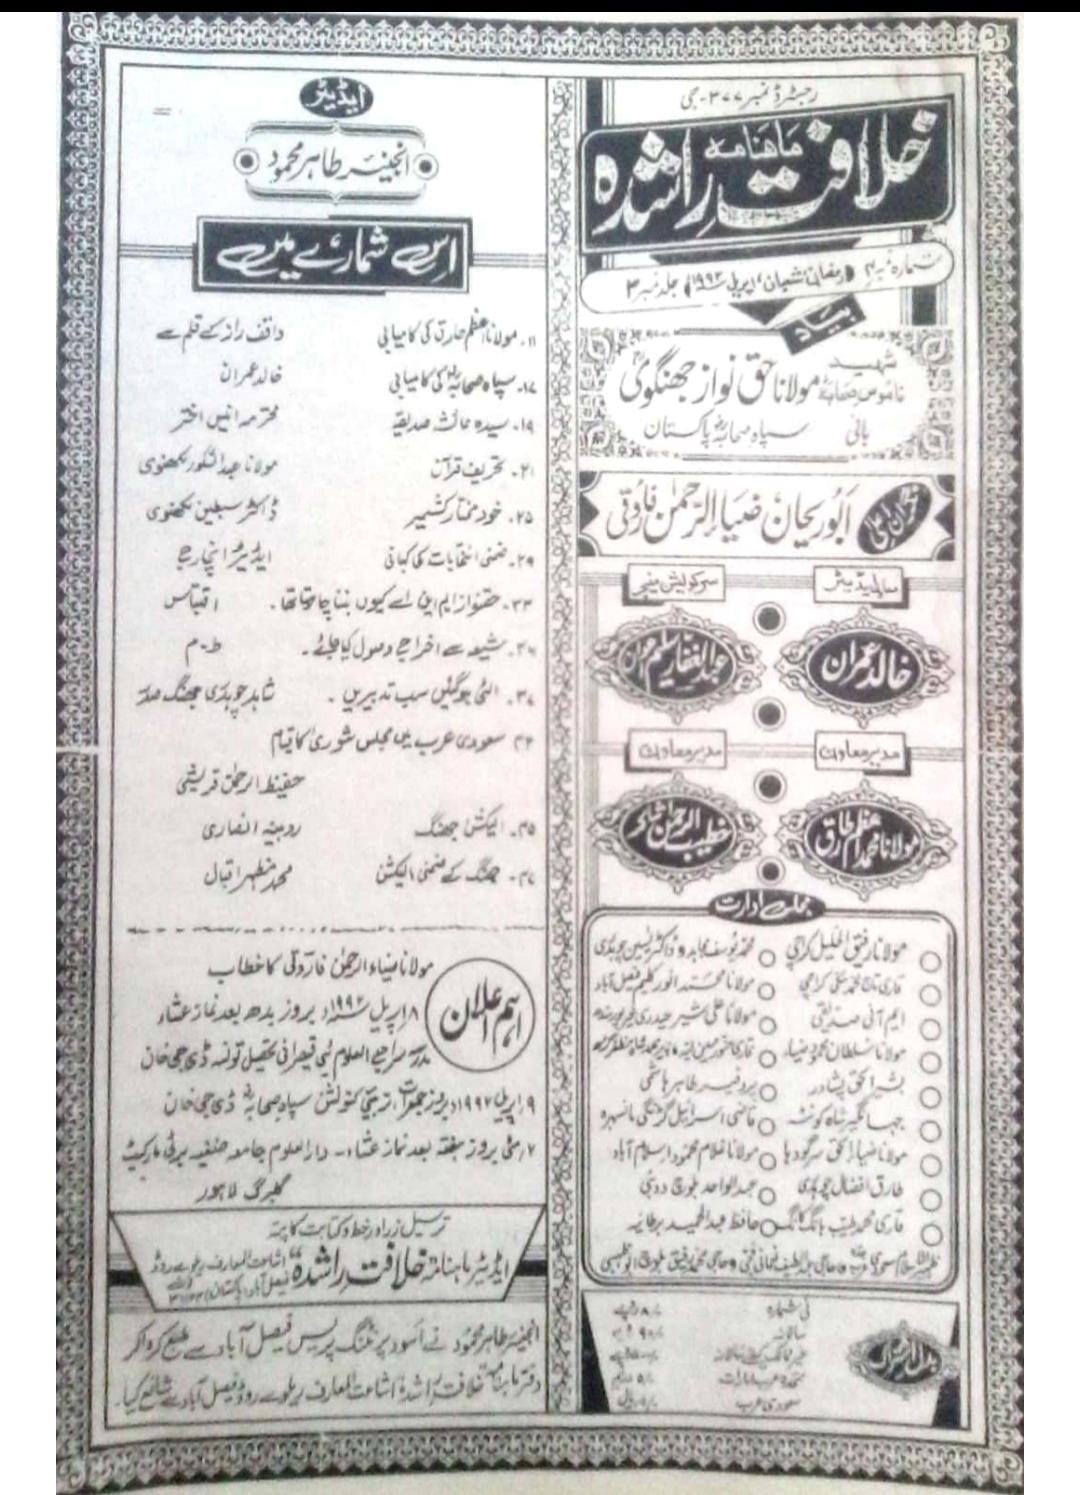 رجسٹرڈ نمبر ۳۷۷-جی
ماہنامہ
خلافت راشدہ
شمارہ نمبر ۴ رمضان/شعبان، اپریل ۱۹۹۲ء جلد نمبر ۳
بیاد
شہید
ناموس صحابہؓ مولانا حق نواز جھنگویؒ
بانی سپاہ صحابہؓ پاکستان
ابوریحان ضیاء الرحمٰن فاروقی
سرکولیشن منیجر
خالد عمران
مدیر معاون
مدیر معاون
مولانا محمد اعظم طارق
مجلس ادارت
مولانا رفیق الخلیل کراچی
محمد یوسف مجاہد و ڈاکٹر یٰسین چوہدری
ایم آئی صدیقی
مولانا محمد انور کلیم فیصل آباد
مولانا علی شیر حیدری
بشیر الحق پشاور
پروفیسر طاہر ہاشمی
جہانگیر شاہ کوئٹہ
قاضی اسرائیل گڑنگی مانسہرہ
مولانا ضیاء الحق سرگودہا
مولانا غلام محمود اسلام آباد
طارق افضال چوہدری
عبدالواحد بلوچ دوبئی
قاری محمد طیب ہانگ کانگ
حافظ عبدالحمید برطانیہ
فی شمارہ
سالانہ
متحدہ عرب امارات
سعودی عرب
بدل اشتراک
ایڈیٹر
انجینئر طاہر محمود
اس شمارے میں
۱۱۔ مولانا اعظم طارق کی کامیابی واقف راز کے قلم سے
۱۷۔ سپاہ صحابہؓ کی کامیابی خالد عمران
۱۹۔ سیدہ عائشہ صدیقہ محترمہ انیس اختر
۲۱۔ تحریف قرآن مولانا عبدالشکور لکھنوی
۲۵۔ خود مختار کشمیر ڈاکٹر سبطین لکھنوی
۲۹۔ ضمنی انتخابات کی کہانی ایڈیٹر انچارج
۳۳۔ حقنواز ایم این اے کیوں بننا چاہتا تھا۔ اقتباس
۳۶۔ شیعہ سے اخراج وصول کیا جائے۔ ط۔م
۳۷۔ الٹی ہو گئیں سب تدبیریں۔ شاہد چوہدری جھنگ صدر
۴۲ سعودی عرب میں مجلس شوریٰ کا قیام
حفیظ الرحمٰن قریشی
۴۵۔ الیکشن جھنگ روبینہ انصاری
۴۷۔ جھنگ کے ضمنی الیکشن محمد مظہر اقبال
اہم اعلان
مولانا ضیاء الرحمٰن فاروقی کا خطاب
۸ اپریل ۱۹۹۲ء بروز بدھ بعد نماز عشاء
مدرسہ سراج العلوم بستی قیصرانی تحصیل تونسہ ڈی جی خان
۹ اپریل ۱۹۹۲ء بروز جمعرات تربیتی کنونشن سپاہ صحابہؓ ڈی جی خان
۷ مئی بروز ہفتہ بعد نماز عشاء۔ دارالعلوم جامعہ حنفیہ برقی مارکیٹ
گلبرگ لاہور
ترسیل زر اور خط و کتابت کا پتہ
ایڈیٹر ماہنامہ "خلافت راشدہ" اشاعت المعارف ریلوے روڈ
فیصل آباد پاکستان
انجینئر طاہر محمود نے اسود پرنٹنگ پریس فیصل آباد سے طبع کروا کر
دفتر ماہنامہ خلافت راشدہ اشاعت المعارف ریلوے روڈ فیصل آباد سے شائع کیا۔